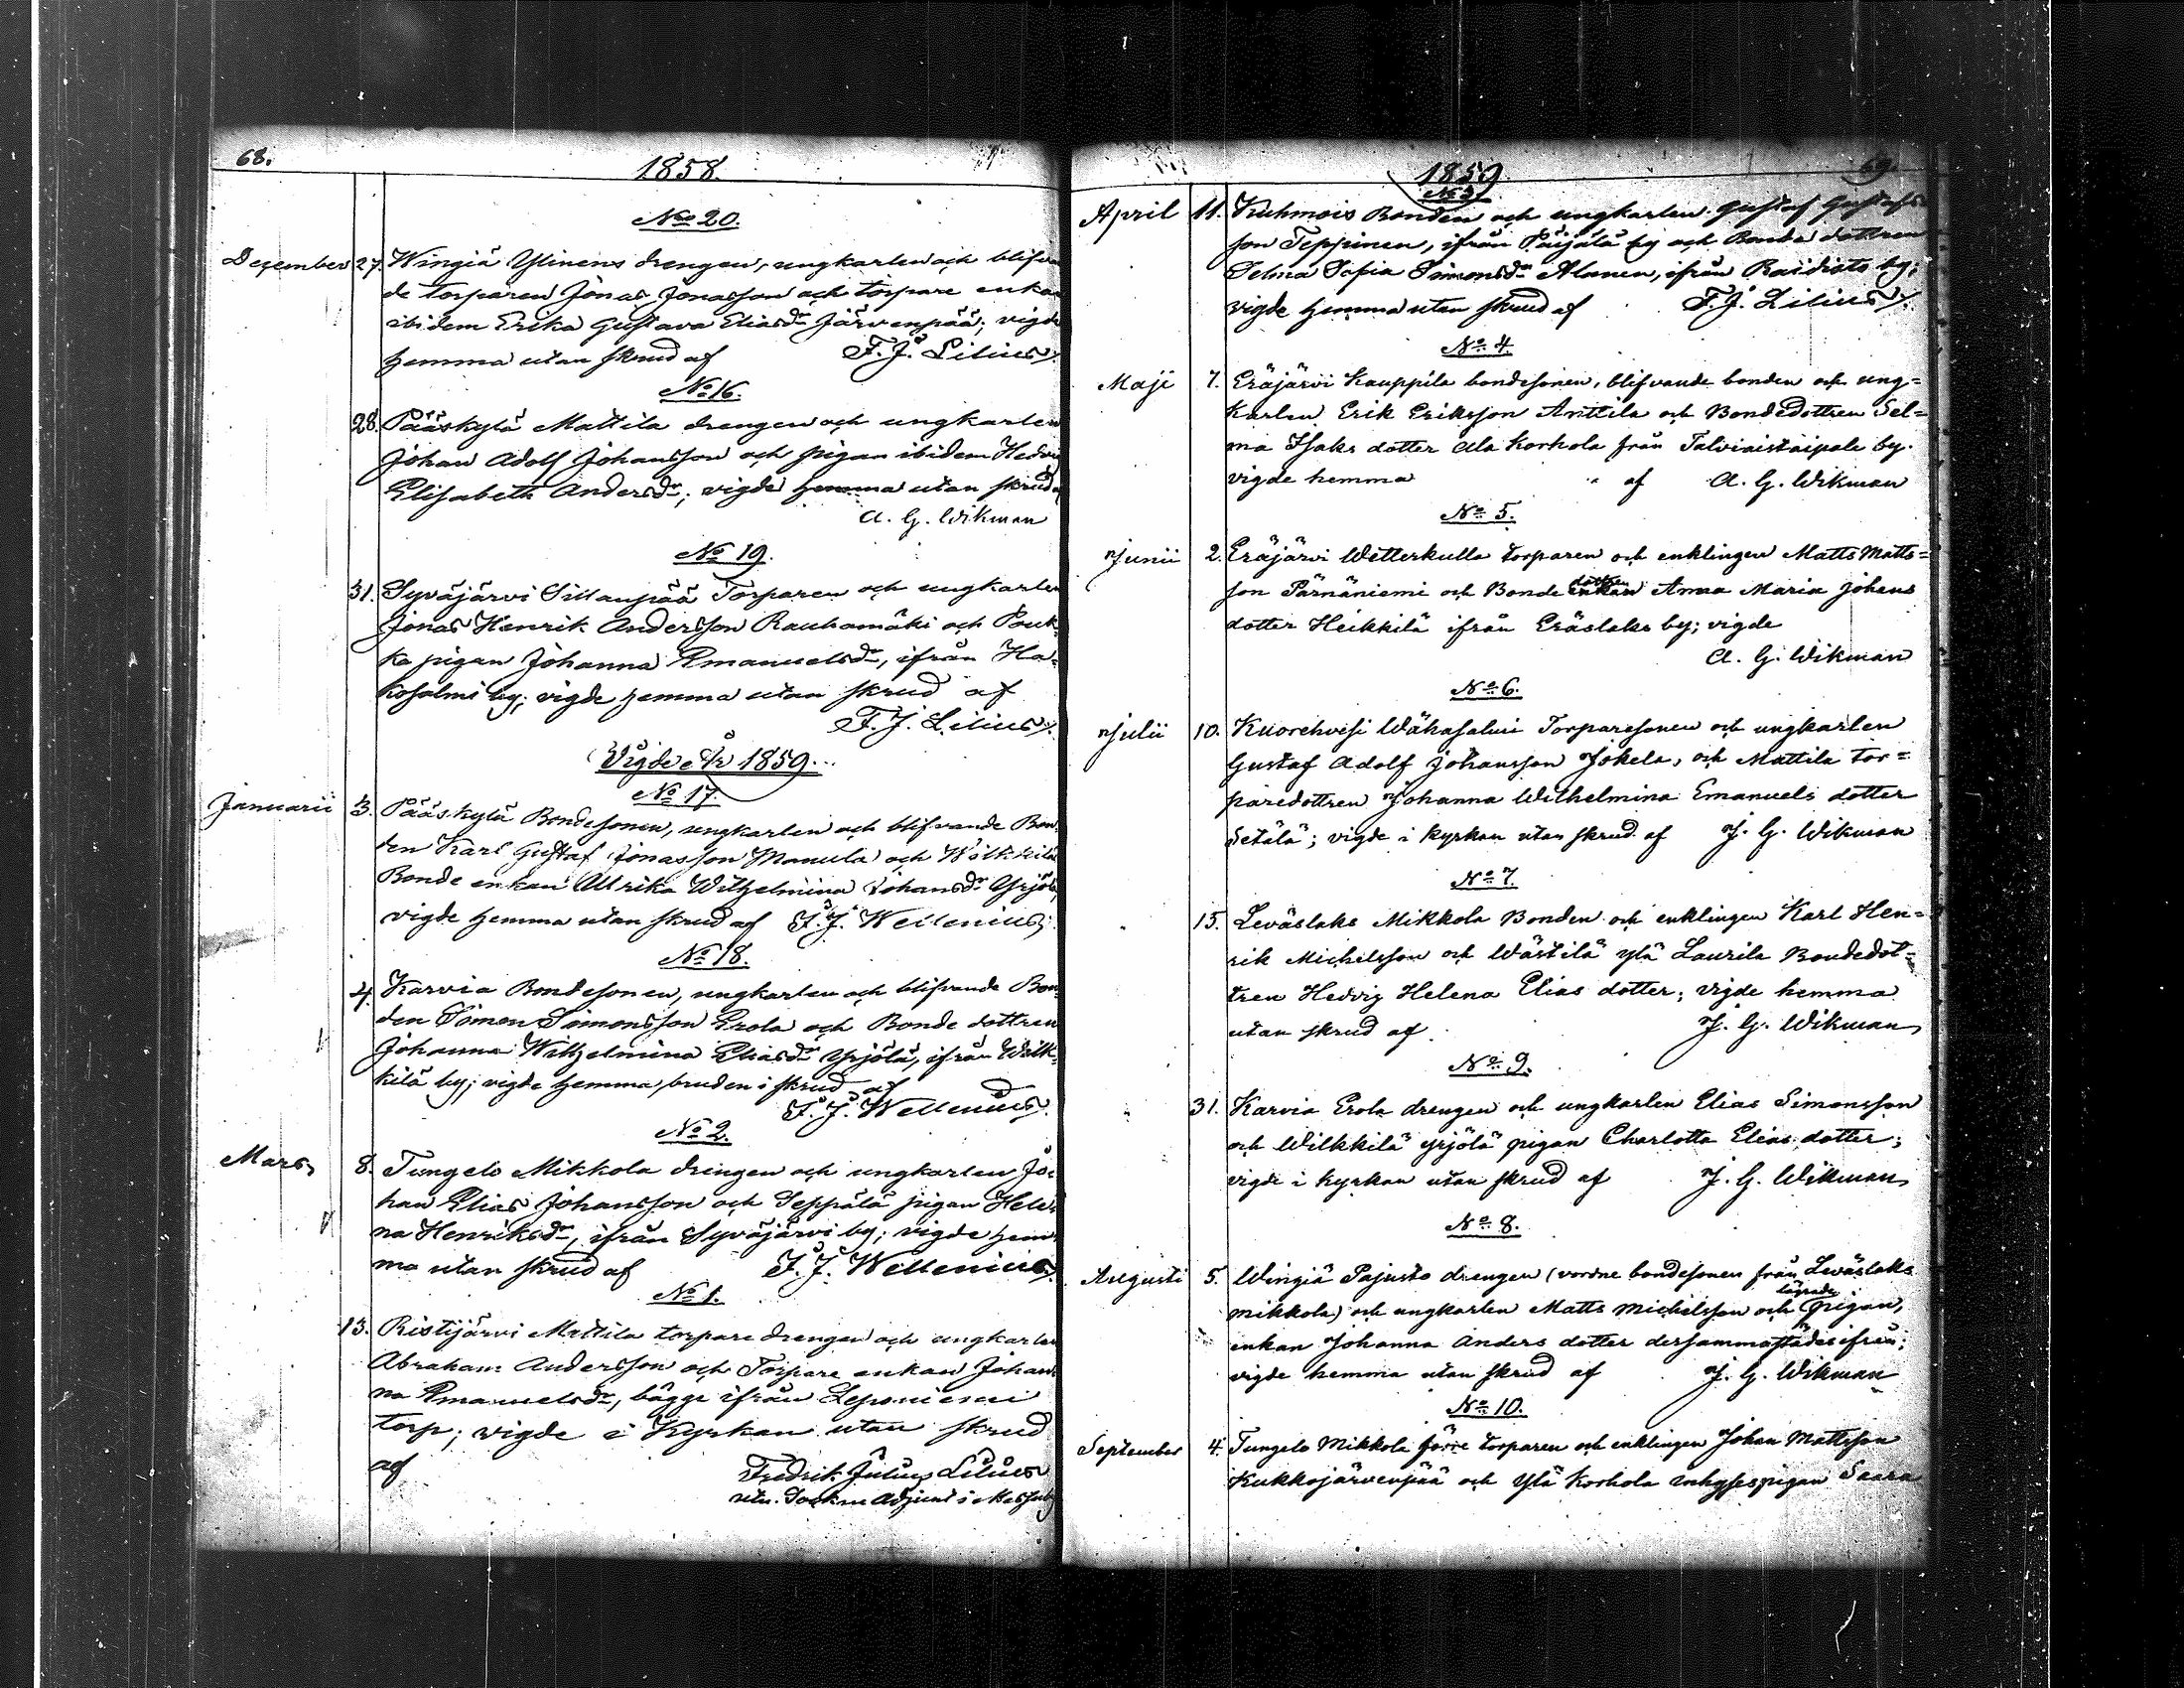 68.
1858.
No 20.
Dezember 27. Wingiä Ylinens drengen, ungkarlen och blifvan
de torparen Jonas Jonasson och torpare enkan
ibidem Erika Gustava Eliasdr Järvenpää; vigde
hemma utan skrud af F. J. Lilius
No 16.
28. Pääskylä Mattila drengen och ungkarlen
Johan Adolf Johansson och pigan ibidem Hedvig
Elisabeth Andersdr; vigde hemma utan skrud af
A. G. Wikman
No 19.
31. Syväjärvi Sillanpää Torparen och ungkarlen
Jonas Henrik Andersson Rauhamäki och Pouk-
ka pigan Johanna Emanuelsdr, ifrån Ha-
kosalmi by; vigde hemma utan skrud af
F. J. Lilius
Vigde År 1859.
No 17.
Januarii 3. Pääskylä Bondesonen, ungkarlen och blifvande Bon-
den Karl Gustaf Jonasson Manula och Wilkkilä
Bonde enkan Ulrika Wilhelmina Johansdr Yrjölä,
vigde hemma utan skrud af F. J. Wellenius
No 18.
4. Karvia Bondesonen, ungkarlen och blifvande Bon-
den Simon Simonsson Erola och Bonde dottren
Johanna Wilhelmina Eliasdr Yrjölä, ifrån Wilk-
kilä by; vigde hemma, bruden i skrud af
F. J. Wellenius
No 2.
Mars 8. Tungelo Mikkola drengen och ungkarlen Jo-
han Elias Johansson och Seppälä pigan Hele-
na Henriksdr, ifrån Syväjärvi by; vigde hem-
ma utan skrud af F. J. Wellenius
No 1.
13. Ristijärvi Mattila torpare drengen och ungkarlen
Abraham Andersson och Torpare enkan Johan-
na Emanuelsdr, bägge ifrån Leponiemi
torp; vigde i Kyrkan utan skrud
af Fredrik Julius Lilius
Adjunct i
1859
69.
No 3.
April 11. Kuhmois Bonden och ungkarlen Gustaf Gustafs
son Teppinen, ifrån Päijälä by och Bonde dottren
Selma Sofia Simonsdr Alanen, ifrån Raidisto by;
vigde hemma utan skrud af F. J. Lilius
No 4.
Maji 7. Eräjärvi Kauppila bondesonen, blifvande bonden och ung-
karlen Erik Eriksson Anttila och Bondedottren Sel-
ma Isaks dotter Ala Korhola från Talviaistaipale by.
vigde hemma af A. G. Wikman
No 5.
Junii 2. Eräjärvi Wetterkulla torparen och enklingen Matts Matts-
son Pärnäniemi och Bonde enkan dottren Anna Maria Johans
dotter Heikkilä ifrån Eräslaks by; vigde
A. G. Wikman
No 6.
Julii 10. Kuorehvesi Wähäsalmi Torparesonen och ungkarlen
Gustaf Adolf Johansson Jokela, och Mattila tor-
paredottren Johanna Wilhelmina Emanuels dotter
Setälä; vigde i kyrkan utan skrud af J. G. Wikman
No 7.
15. Leväslaks Mikkola Bonden och enklingen Karl Hen-
rik Michelsson och Wästilä ylä Laurila Bondedot-
tren Hedvig Helena Elias dotter; vigde hemma
utan skrud af J. G. Wikman
No 9.
31. Karvia Erola drengen och ungkarlen Elias Simonsson
och Wilkkilä yrjölä pigan Charlotta Elias dotter;
vigde i kyrkan utan skrud af J. G. Wikman
No 8.
Augusti 5. Wingiä Pajusto drengen (vordne bondesonen från Leväslaks
Mikkola) och ungkarlen Matts Michelsson och lägrade pigan,
enkan Johanna Anders dotter dersammastädes ifrån;
vigde hemma utan skrud af J. G. Wikman
No 10.
September 4. Tungelo Mikkola förre torparen och enklingen Johan Mattsson
Kukkojärvenpää och Ylä Korhola inhysespigan Saara